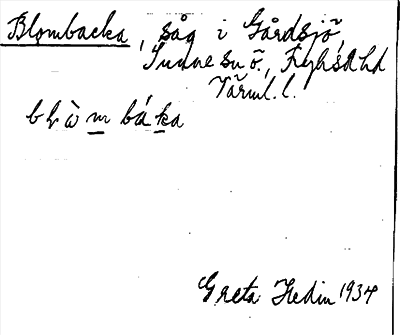 Blombacka, såg i Gårdsjö,
Sunne sn ö., Fryksd hd
Värml. l.
blòmbáka
Greta Hedin 1934